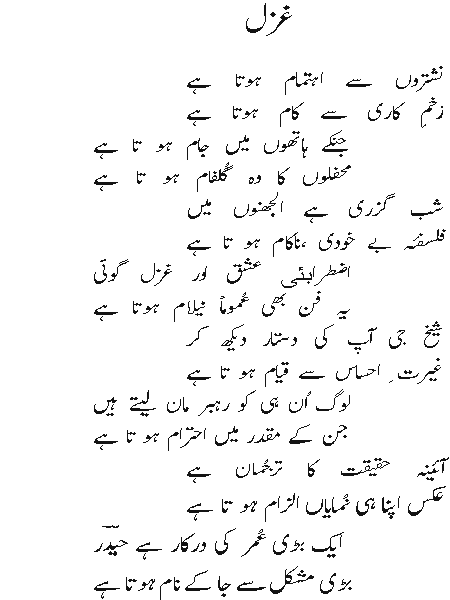 غزل
نشتروں سے اہتمام ہوتا ہے
زخم کاری سے کام ہوتا ہے
جنکے ہاتھوں میں جام ہو تا ہے
محفلوں کا وہ گُلفام ہو تا ہے
شب گزری ہے الجھنوں میں
فلسفۂ بے خودی ،ناکام ہو تا ہے
اضطرابئی عشق اور غزل گوئی
یہ فن بھی عُموماً نیلام ہوتا ہے
شیخ جی آپ کی دستار دیکھ کر
غیرتِ احساس سے قیام ہو تا ہے
لوگ اُن ہی کو رہبر مان لیتے ہیں
جن کے مقدر میں احترام ہو تا ہے
آئینہ حقیقت کا ترجُمان ہے
عکس اپنا ہی نُمایاں الزام ہو تا ہے
ایک بڑی عُمر کی درکار ہے حیدؔر
بڑی مشکل سے جا کے نام ہو تا ہے